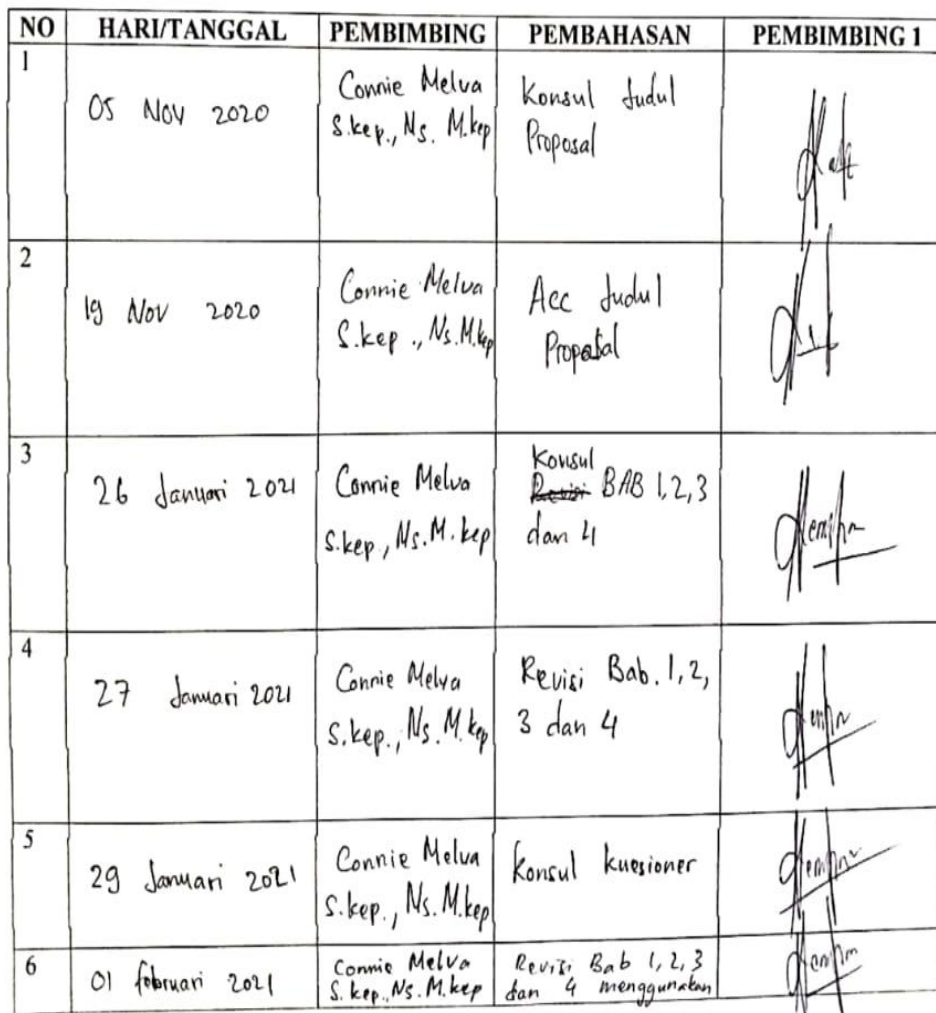 NO HARI/TANGGAL PEMBIMBING PEMBAHASAN PEMBIMBING 1
1
05 Nov 2020
Connie Melva
S.kep., Ns. M.kep
Konsul Judul
Proposal
2
19 Nov 2020
Connie Melva
S.kep., Ns.M.kep
Acc Judul
Proposal
3
26 Januari 2021
Connie Melva
S.kep., Ns.M.kep
Konsul
Revisi BAB 1,2,3
dan 4
4
27 Januari 2021
Connie Melva
S.kep., Ns.M.kep
Revisi Bab. 1,2,
3 dan 4
5
29 Januari 2021
Connie Melva
S.kep., Ns. M.kep
Konsul kuesioner
6
01 februari 2021
Connie Melva
S.kep., Ns. M.kep
Revisi Bab 1,2,3
dan 4 menggunakan